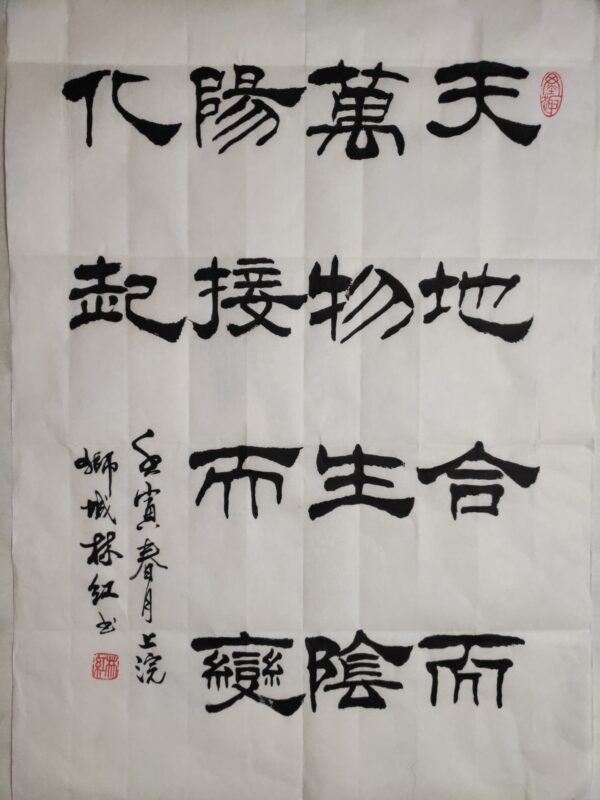 天地合而
萬物生陰
陽接而變
化起
壬寅春月上浣
獅城林紅書